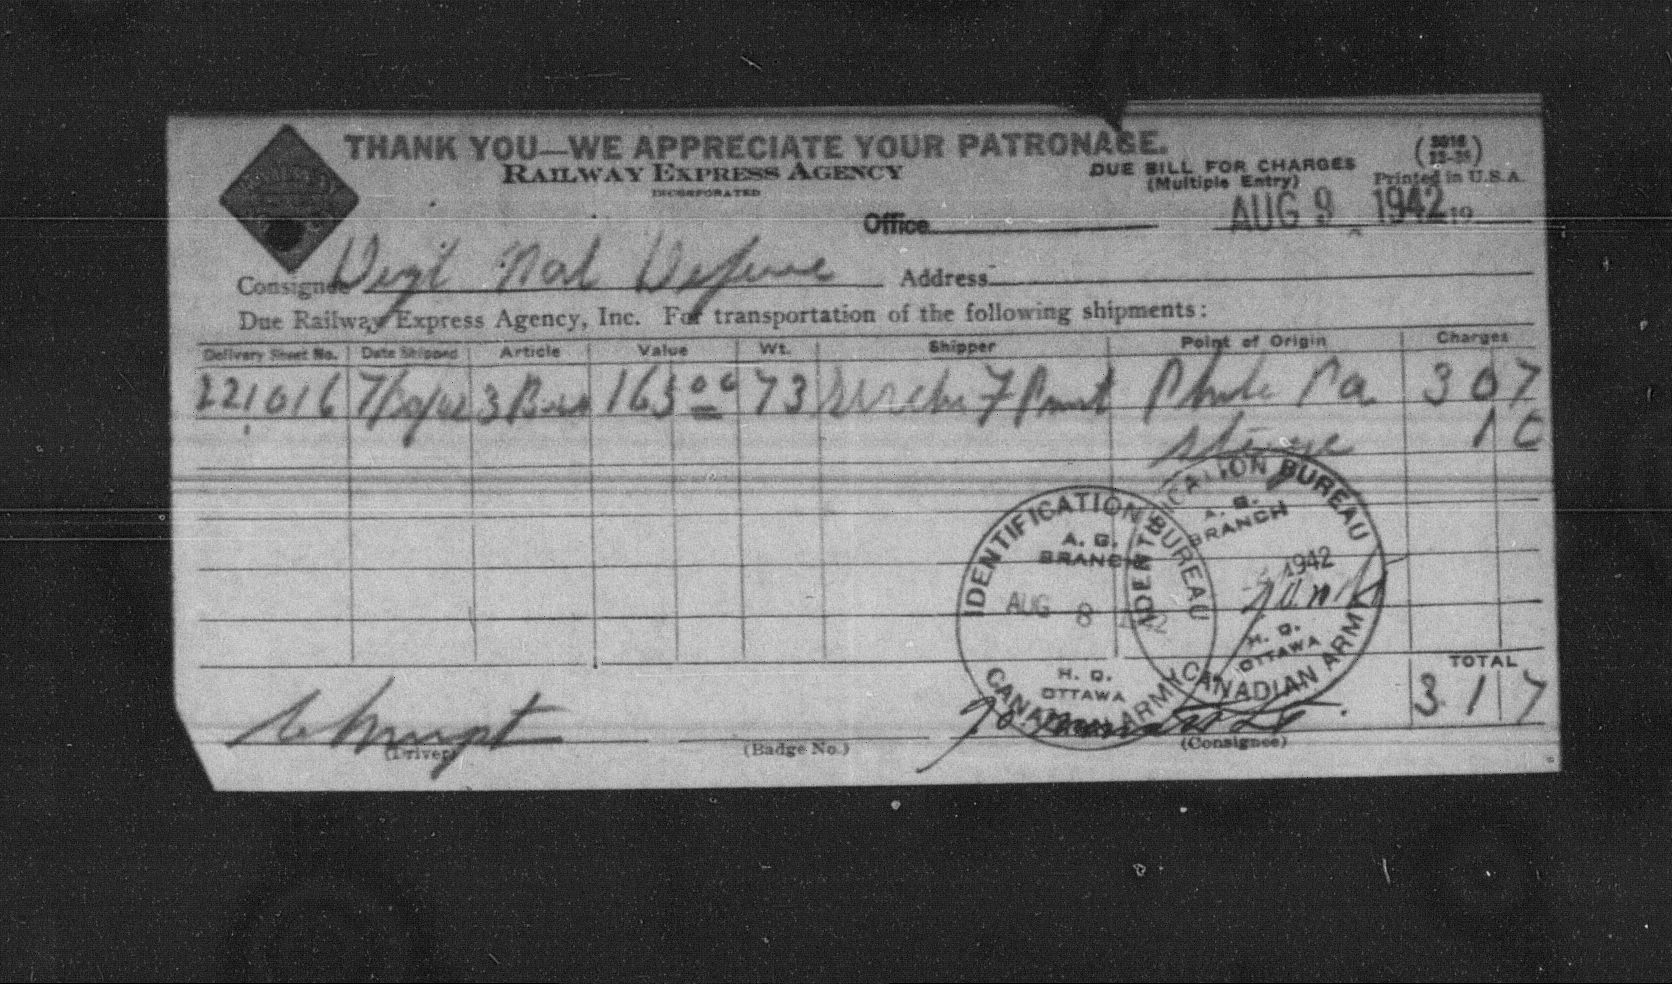 THANK YOU—WE APPRECIATE YOUR PATRONAGE.
RAILWAY EXPRESS AGENCY
INCORPORATED
DUE BILL FOR CHARGES
(Multiple Entry)
Printed in U.S.A.
Office AUG 9 1942 19
Consignee Dept Nat Defense Address
Due Railway Express Agency, Inc. For transportation of the following shipments:
Delivery Sheet No. Date Shipped Article Value Wt. Shipper Point of Origin Charges
221016 7/30/42 3 Bxs 165 00 73 Phila Pa 3 07
10
IDENTIFICATION BUREAU
A. G.
BRANCH
AUG 8 1942
H. Q.
OTTAWA
CANADIAN ARMY
IDENTIFICATION BUREAU
A. G.
BRANCH
1942
H. Q.
OTTAWA
CANADIAN ARMY
TOTAL
3 17
(Driver) (Badge No.) (Consignee)